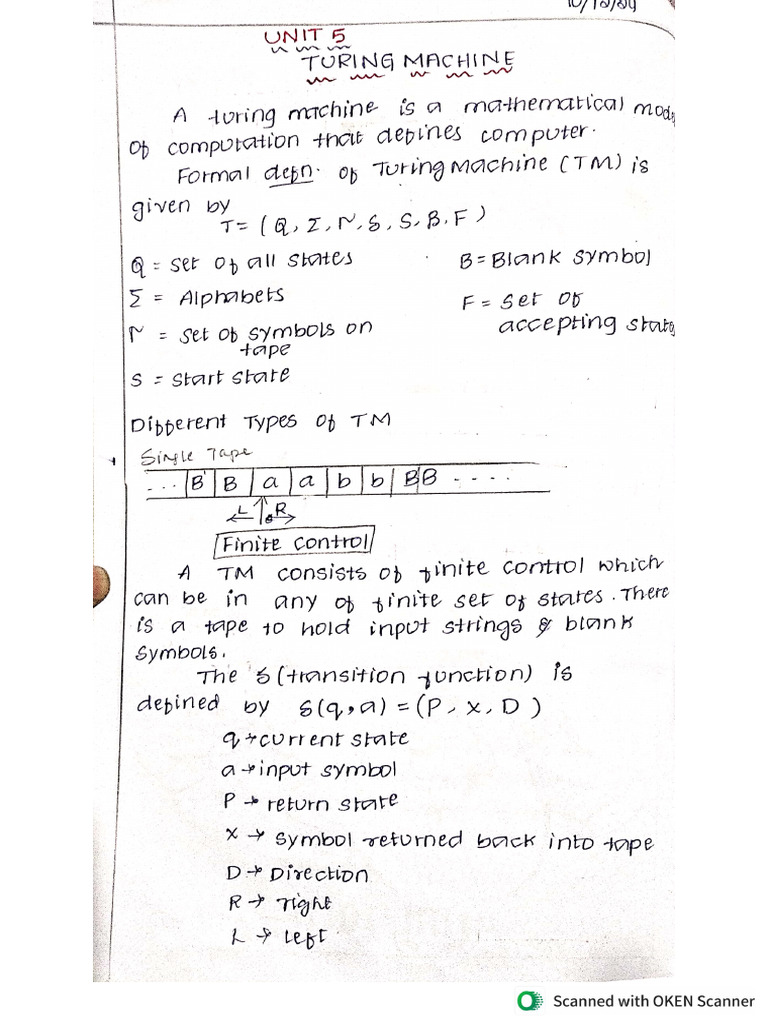 10/12/24
UNIT 5
TURING MACHINE
A turing machine is a mathematical mode
of computation that defines computer.
Formal defn. of Turing Machine (TM) is
given by
T = (Q, Σ, Γ, δ, S, B, F)
Q = set of all states
B = Blank symbol
Σ = Alphabets
F = set of
accepting state
Γ = set of symbols on
tape
S = start state
Different Types of TM
Single Tape
... B B a a b b B B ----
L R
Finite control
A TM consists of finite control which
can be in any of finite set of states. There
is a tape to hold input strings & blank
symbols.
The δ (transition function) is
defined by δ(q, a) = (P, x, D)
q → current state
a → input symbol
P → return state
x → symbol returned back into tape
D → Direction
R → right
L → left
Scanned with OKEN Scanner